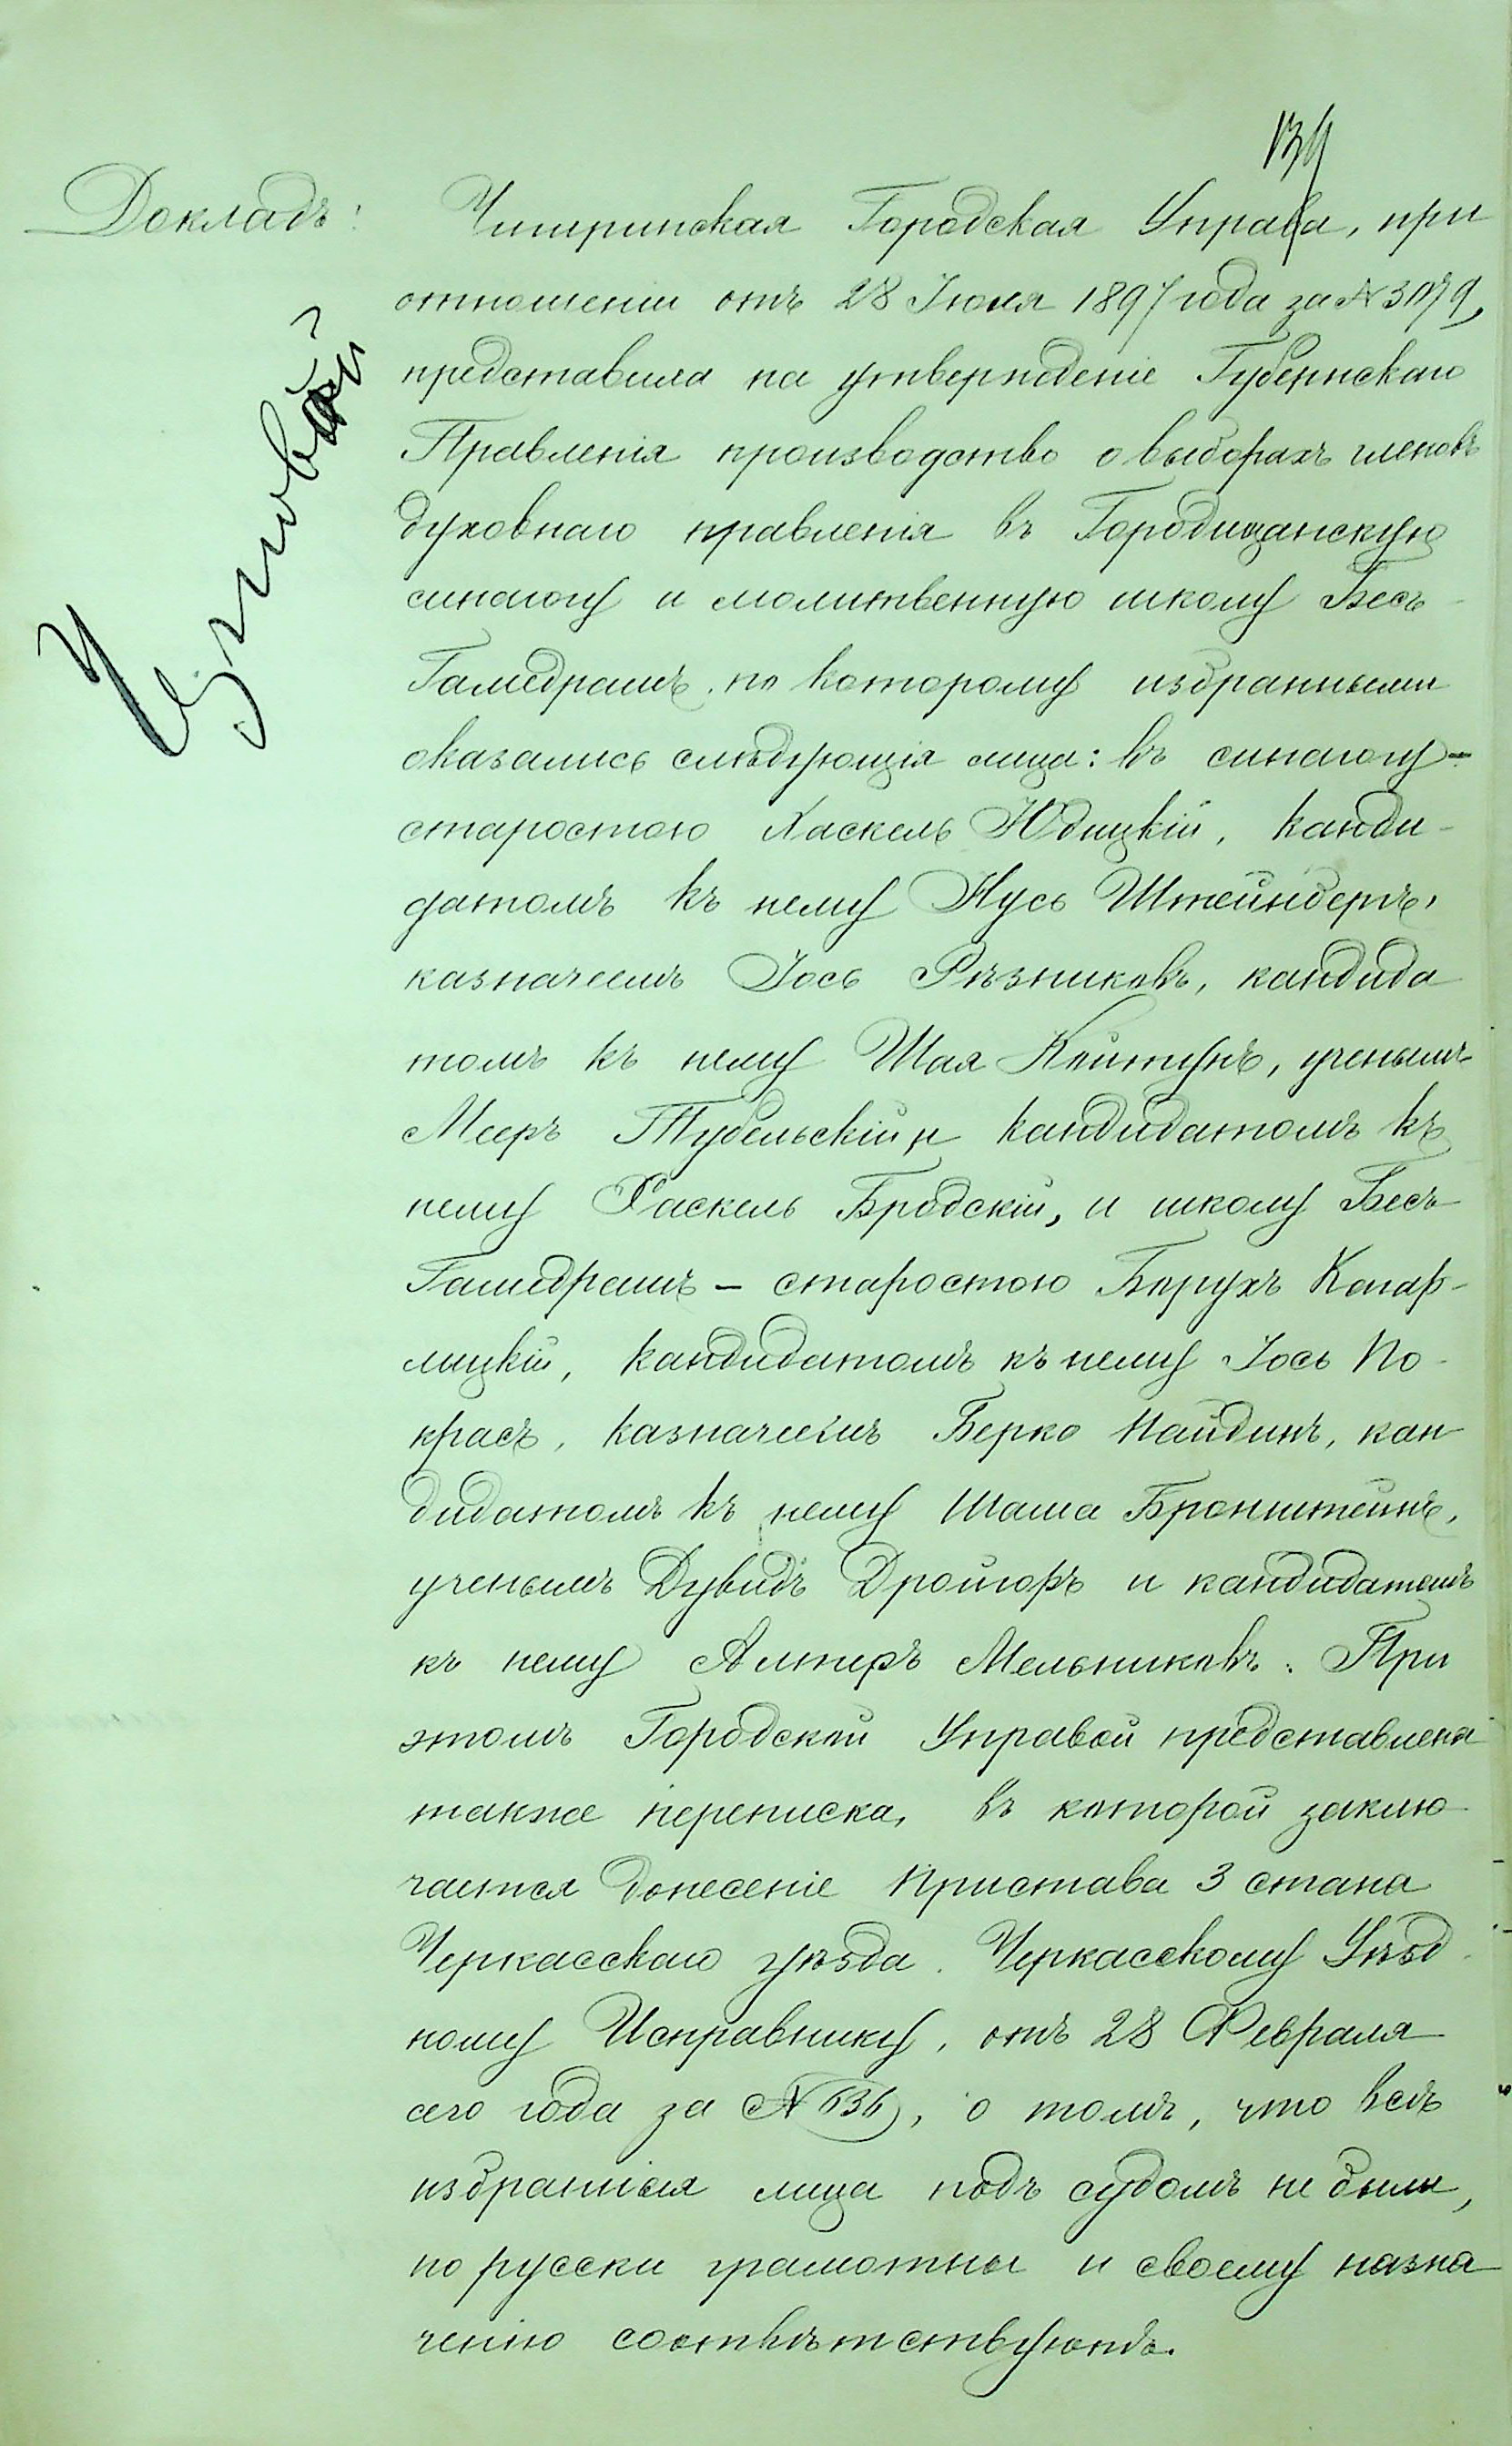 139
Докладъ:
Чигиринская Городская Управа, при
отношеніи отъ 28 Іюля 1897 года за № 3079,
представила на утвержденіе Губернскаго
Правленія производство о выборахъ членовъ
духовнаго правленія въ Городищанскую
синагогу и молитвенную школу Бесъ-
Гамедрашъ, по которому избранными
оказались слѣдующія лица: въ синагогу –
старостою Хаскель Юдицкій, канди-
датомъ къ нему Нусь Штейнбергъ,
казначеемъ Іось Рѣзниковъ, кандида
томъ къ нему Шая Койтунъ, ученымъ
Мееръ Тубельскій и кандидатомъ къ
нему Хаскель Бродскій, и школу Бесъ
Гамедрашъ – старостою Борухъ Кагар-
лицкій, кандидатомъ къ нему Іось По-
красъ, казначеемъ Берко Найдинъ, кан
дидатомъ къ нему Шама Бронштейнъ,
ученымъ Дувидъ и кандидатомъ
къ нему Алтеръ Мельниковъ. При
этомъ Городской Управой представлена
также переписка, въ которой заклю-
чается донесеніе Пристава 3 стана
Черкасскаго уѣзда Черкасскому Уѣзд
ному Исправнику, отъ 28 Февраля
сего года за № 636, о томъ, что всѣ
избранныя лица подъ судомъ не были,
по русски грамотны и своему назна
ченію соотвѣтствуютъ.